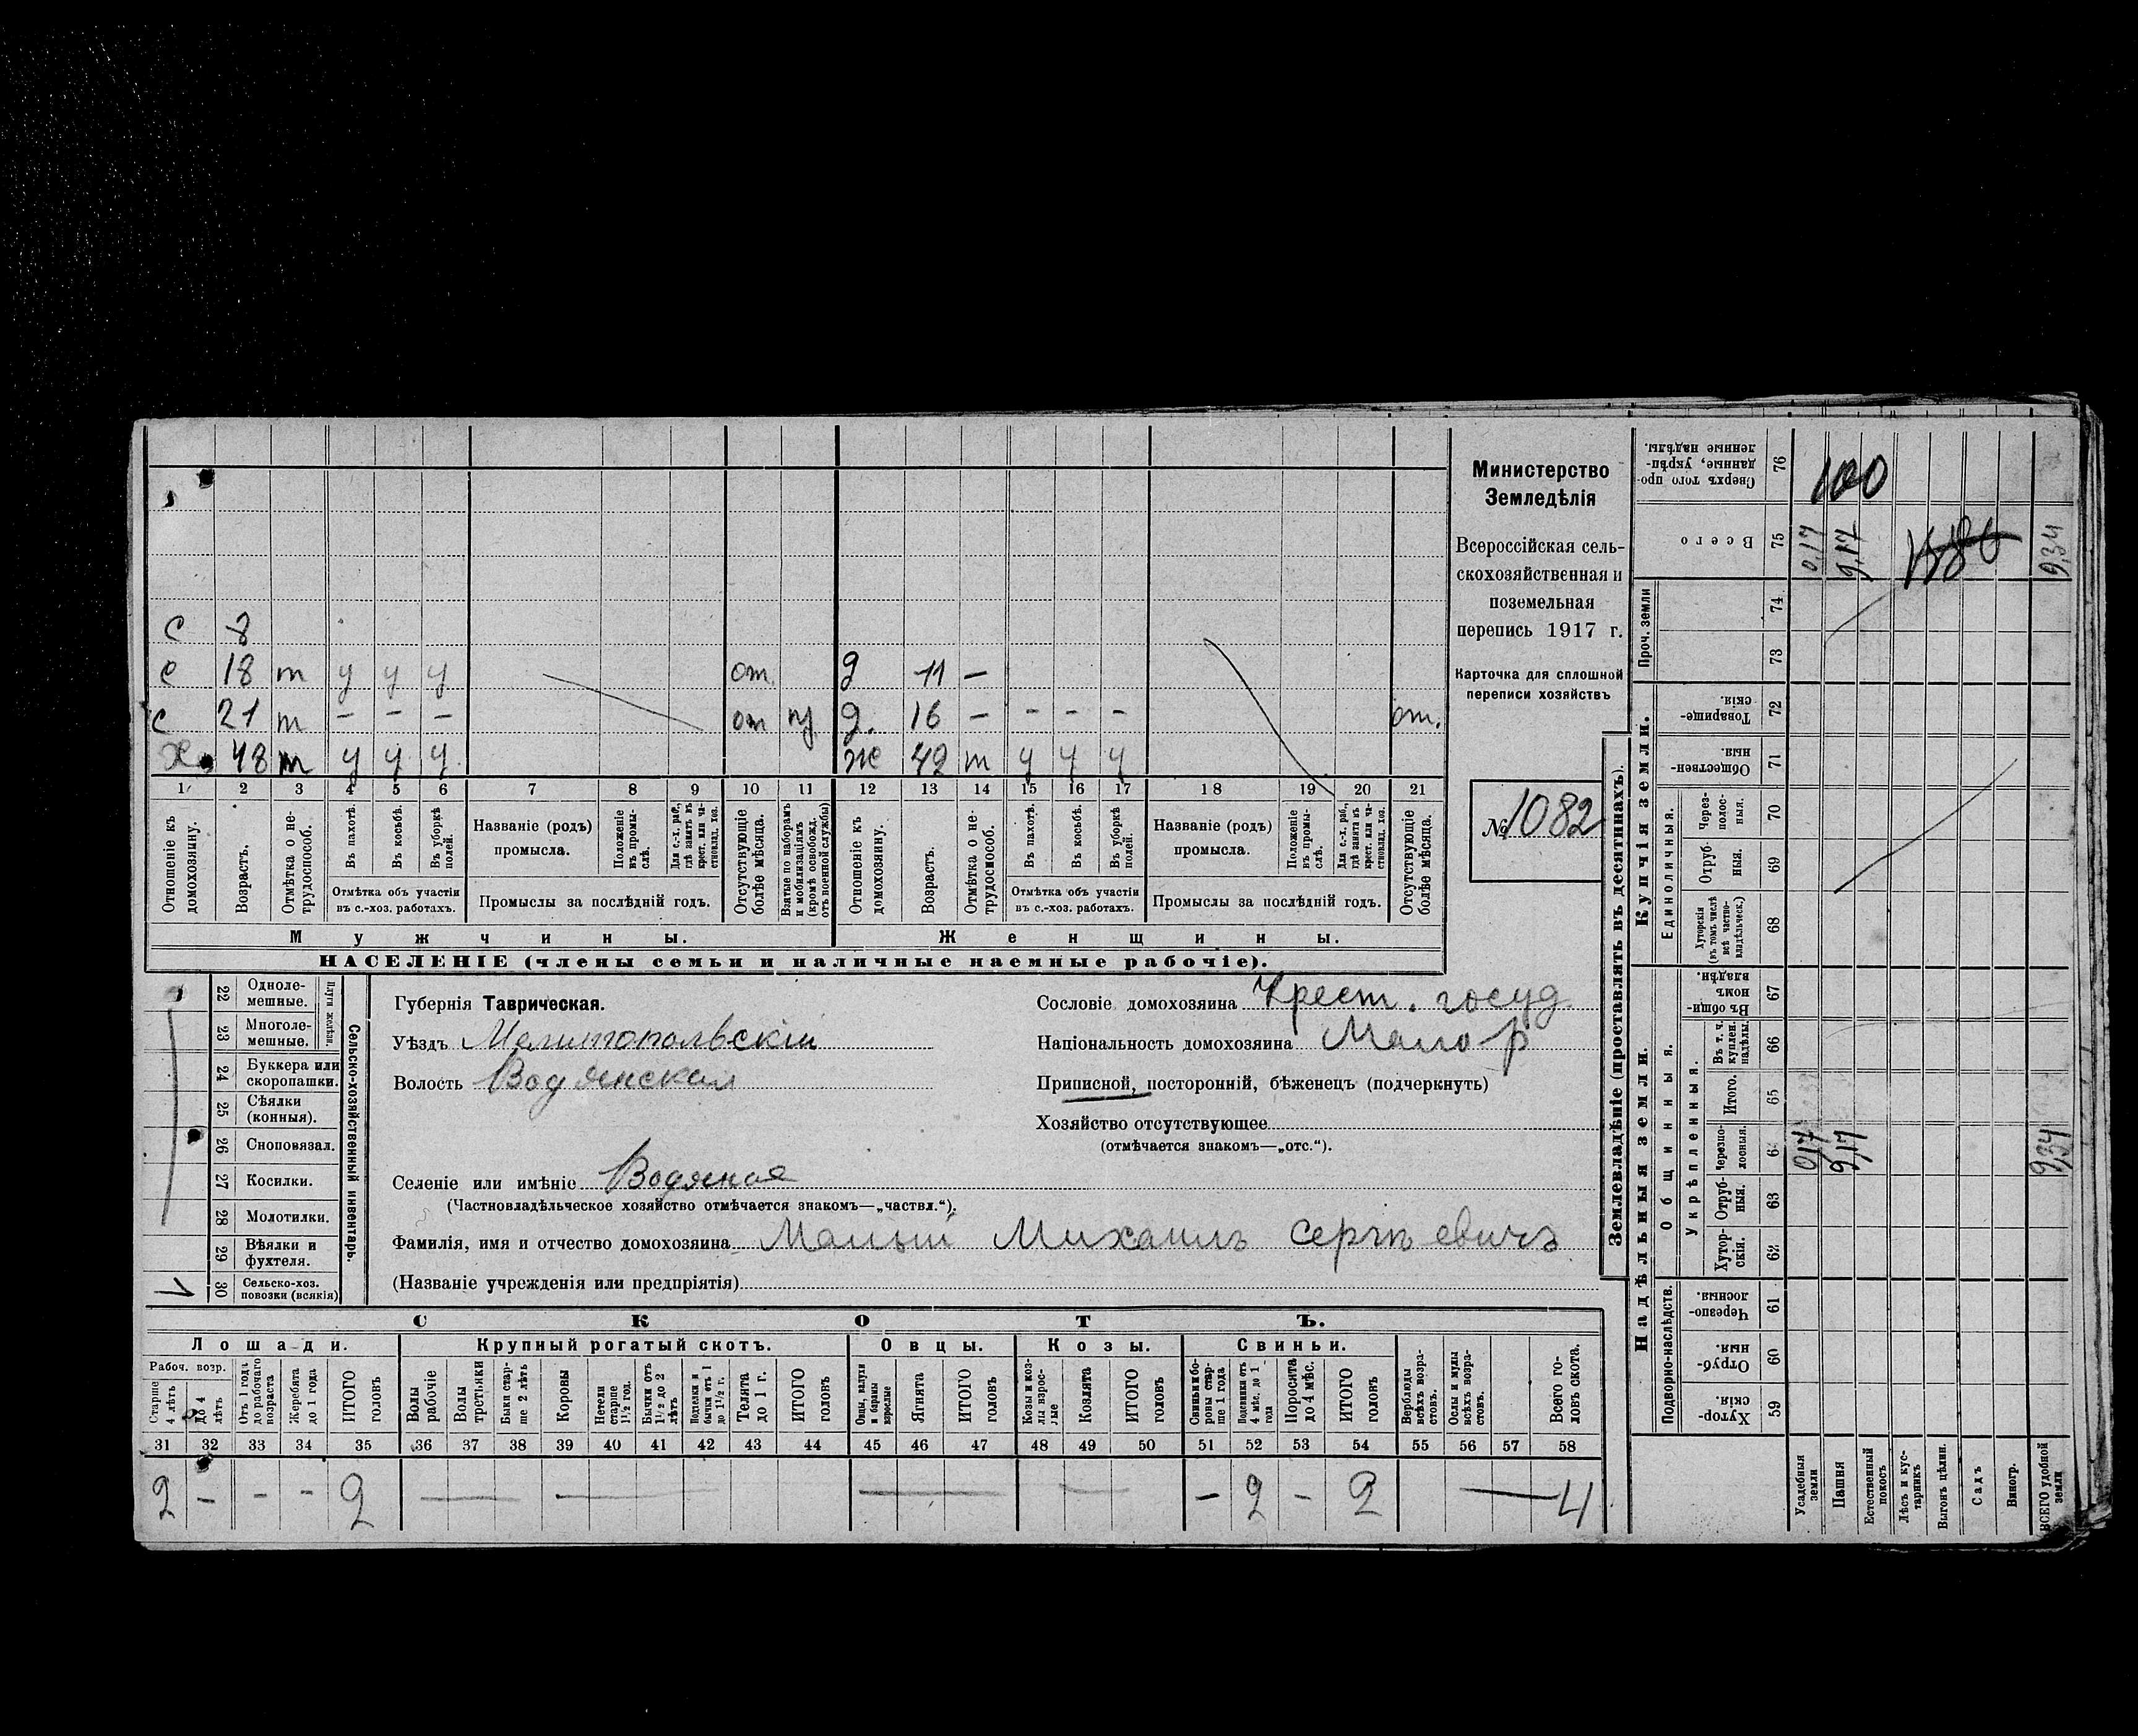 Министерство
Земледѣлія
Всероссійская сель-
скохозяйственная и
поземельная
перепись 1917 г.
Карточка для сплошной
переписи хозяйствъ
№ 1082
с 8
с 18 т у у у от. д 11 —
с 21 т — — — от д. 16 — — — — от.
Х. 48 т у у у ж 42 т у у у
1 2 3 4 5 6 7 8 9 10 11 12 13 14 15 16 17 18 19 20 21
Отношеніе къ домохозяину.
Возрастъ.
Отмѣтка о не-трудоспособ.
Въ пахотѣ.
Въ косьбѣ.
Въ уборкѣ полей.
Отмѣтка объ участіи въ с.-хоз. работахъ.
Названіе (родъ) промысла.
Положеніе въ промы-слѣ.
Для с.-х. раб., гдѣ занятъ въ крест. или ча-стновлад. хоз.
Промыслы за послѣдній годъ.
Отсутствующіе болѣе мѣсяца.
Взятые по наборамъ и мобилизаціямъ (кромѣ освобожд. отъ военной службы)
Отношеніе къ домохозяину.
Возрастъ.
Отмѣтка о не-трудоспособ.
Въ пахотѣ.
Въ косьбѣ.
Въ уборкѣ полей.
Отмѣтка объ участіи въ с.-хоз. работахъ.
Названіе (родъ) промысла.
Положеніе въ промы-слѣ.
Для с.-х. раб., гдѣ занятъ въ крест. или ча-стновлад. хоз.
Промыслы за послѣдній годъ.
Отсутствующіе болѣе мѣсяца.
Мужчины. Женщины.
НАСЕЛЕНІЕ (члены семьи и наличные наемные рабочіе).
Сельско-хозяйственный инвентарь.
Плуги желѣзн.
22 Одноле-мешные.
23 Многоле-мешные.
24 Буккера или скоропашки.
25 Сѣялки (конныя).
26 Сноповязал.
27 Косилки.
28 Молотилки.
29 Вѣялки и фухтеля.
30 Сельско-хоз. повозки (всякія)
Губернія Таврическая.
Уѣздъ Мелитопольскій
Волость Водянская
Сословіе домохозяина Крест. госуд
Національность домохозяина Мало-р
Приписной, посторонній, бѣженецъ (подчеркнуть)
Хозяйство отсутствующее
(отмѣчается знакомъ—„отс.“).
Селеніе или имѣніе Водяное
(Частновладѣльческое хозяйство отмѣчается знакомъ—„частвл.“).
Фамилія, имя и отчество домохозяина Малый Михаилъ Сергѣевичъ
(Названіе учрежденія или предпріятія)
СКОТЪ.
Лошади. Крупный рогатый скотъ. Овцы. Козы. Свиньи.
Рабоч. возр.
Старше 4 лѣтъ
до 4 лѣтъ
Отъ 1 года до рабочаго возраста
Жеребята до 1 года
ИТОГО головъ
Волы рабочіе
Волы третьяки
Быки стар-ше 2 лѣтъ
Коровы
Нетели старше 1½ год.
Бычки отъ 1½ до 2 лѣтъ
Подтелки и бычки отъ 1 до 1½ г.
Телята до 1 г.
ИТОГО головъ
Овцы, валухи и бараны взрослые
Ягнята
ИТОГО головъ
Козы и коз-лы взрос-лые
Козлята
ИТОГО головъ
Свиньи и бо-ровы стар-ше 1 года
Подсвинки отъ 4 мѣс. до 1 года
Поросята до 4 мѣс.
ИТОГО головъ
Верблюды всѣхъ возра-стовъ.
Ослы и мулы всѣхъ возра-стовъ.
Всего го-ловъ скота.
31 32 33 34 35 36 37 38 39 40 41 42 43 44 45 46 47 48 49 50 51 52 53 54 55 56 57 58
2 — — — 2 — — — — — 2 — 2 — 4
Землевладѣніе (проставлять въ десятинахъ).
Надѣльныя земли. Купчія земли.
Проч. земли
Подворно-наслѣдств.
Общинныя.
Укрѣпленныя.
Единоличныя.
76 Сверхъ того про-данные, укрѣп-ленные надѣлы. 100
75 Всего 0,17 9,17 9,34
74
73
72 Товарище-скія.
71 Обществен-ныя.
70 Через-полос-ныя.
69 Отруб-ныя.
68 Хуторскія (въ томъ числѣ всѣ частно-владѣльческ.)
67 Въ общин-номъ владѣн.
66 Въ т. ч. куплен. надѣлы.
65 Итого.
64 Черезпо-лосныя. 0,17 9,17 9,34
63 Отруб-ныя.
62 Хутор-скія.
61 Черезпо-лосныя.
60 Отруб-ныя.
59 Хутор-скія.
Усадебныя земли
Пашня
Естественный покосъ
Лѣсъ и кус-тарникъ
Выгонъ цѣлин.
Садъ
Виногр.
ВСЕГО удобной земли